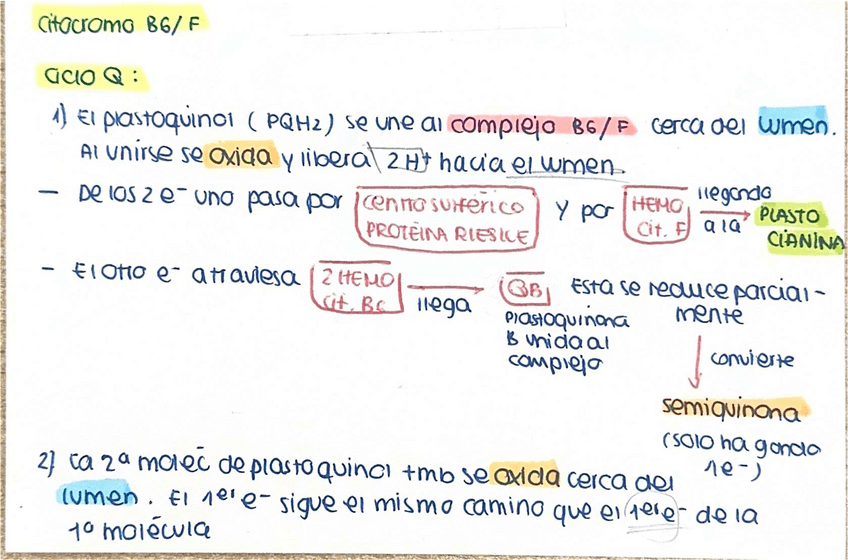 Citocromo B6/F
Ciclo Q:
1) El plastoquinol (PQH2) se une al complejo B6/F cerca del lumen.
Al unirse se oxida y libera 2H+ hacia el lumen.
— De los 2 e- uno pasa por centro sulférico PROTEÍNA RIESKE y por HEMO Cit. F llegando a la PLASTOCIANINA
- El otro e- atraviesa 2 HEMO Cit. B6 llega QB Esta se reduce parcialmente
Plastoquinona
B unida al
complejo
convierte
semiquinona
(solo ha ganado
1e-)
2) La 2ª molec de plastoquinol tmb se oxida cerca del
lumen. El 1er e- sigue el mismo camino que el 1er e- de la
1º molécula